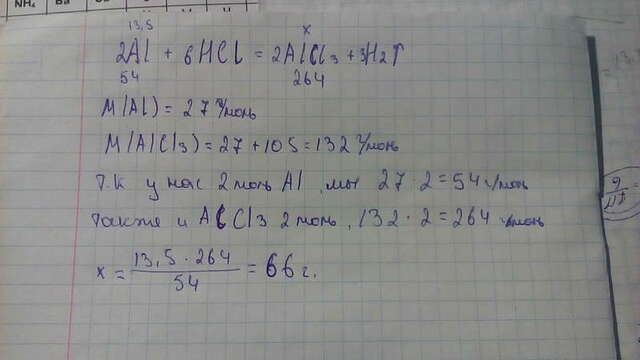 NH₄ Ba
13,5 x
2Al + 6HCl = 2AlCl₃ + 3H₂↑
54 264
M(Al) = 27 г/моль
M(AlCl₃) = 27 + 105 = 132 г/моль
Т.к у нас 2 моль Al, мы 27 · 2 = 54 г/моль
также и AlCl₃ 2 моль, 132 · 2 = 264 г/моль
x = 13,5 · 264 / 54 = 66 г.